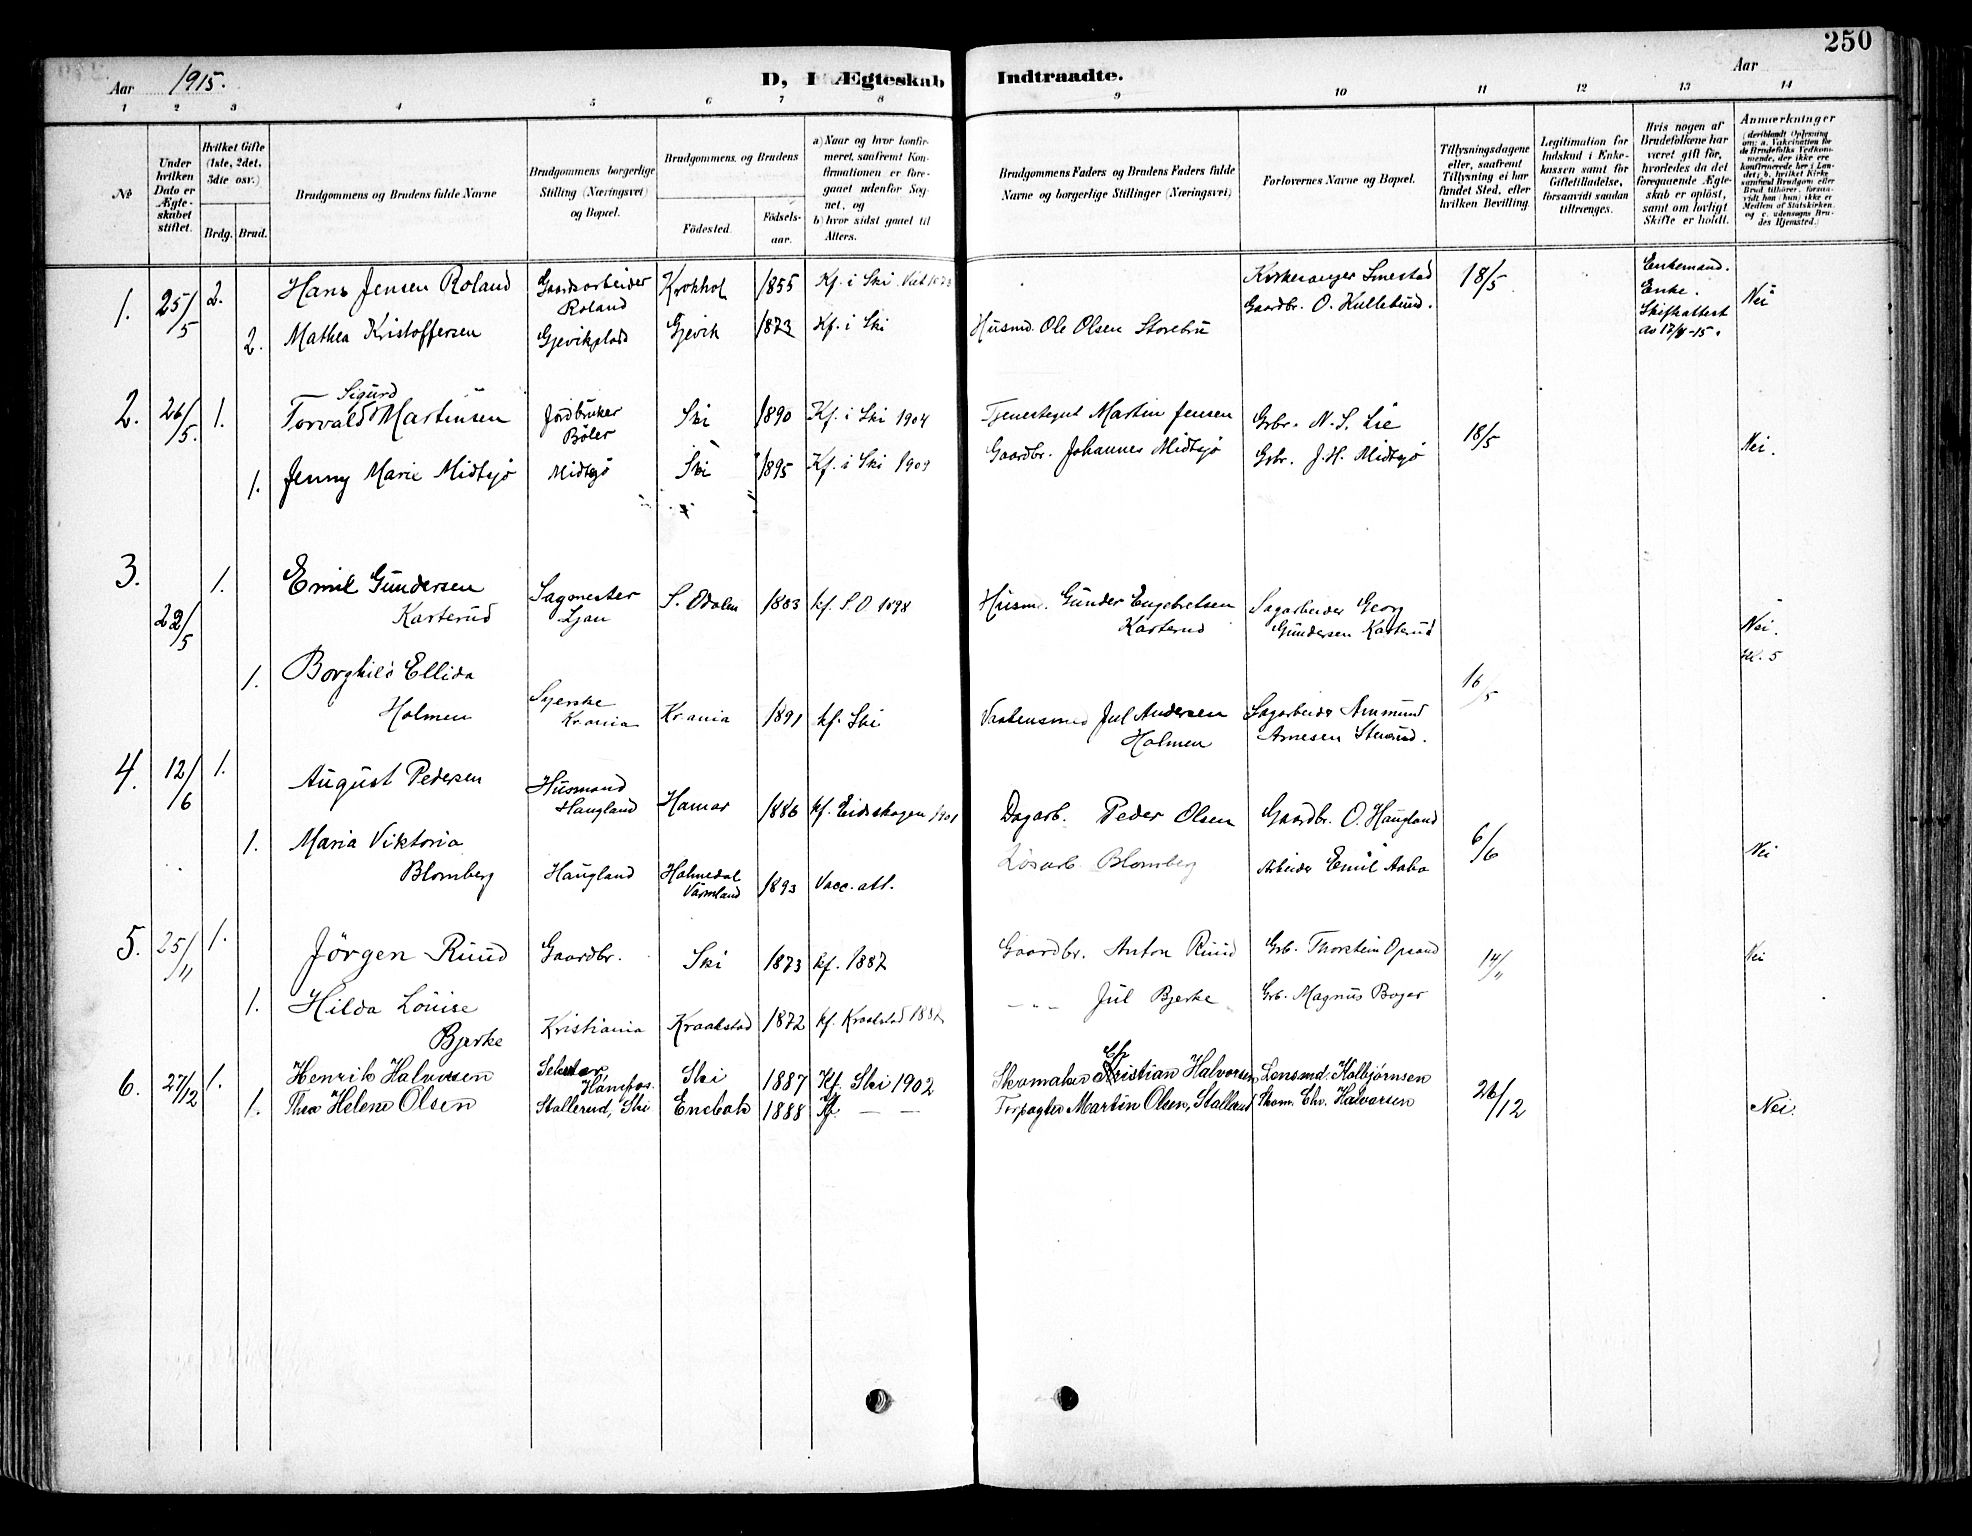 250
Aar 1915.
D, I Ægteskab Indtraadte.
Aar
1 2 3 4 5 6 7 8 9 10 11 12 13 14
№
Under hvilken Dato er Ægteskabet stiftet.
Hvilket Gifte (1ste, 2det, 3dte osv.)
Brdg. Brud.
Brudgommens og Brudens fulde Navne
Brudgommens borgerlige Stilling (Næringsvei) og Bopæl.
Brudgommens og Brudens
Födested. Födselsaar.
a) Naar og hvor konfirmeret, saafremt Konfirmationen er foregaaet udenfor Sognet, og
b) hvor sidst gaaet til Alters.
Brudgommens Faders og Brudens Faders fulde Navne og borgerlige Stillinger (Næringsvei)
Forlovernes Navne og Bopæl.
Tillysningsdagene eller, saafremt Tillysning ei har fundet Sted, efter hvilken Bevilling.
Legitimation for Indskud i Enkekassen samt for Giftetilladelse, forsaavidt saadan tiltrænges.
Hvis nogen af Brudefolkene har været gift för, hvorledes da det foregaaende Ægteskab er oplöst, samt om lovligt Skifte er holdt.
Anmærkninger
(deriblandt Oplysning om: a. Vaccination for de Brudefolks Vedkommende, der ikke ere konfirmerede her i Landet; b. hvilket Kirkesamfund Brudgom eller Brud tilhører, forsaavidt han (hun) ikke er Medlem af Statskirken, og c. udensogns Brudes Hjemsted.)
1. 25/5 2. Hans Jensen Roland Gaardsarbeider Roland Krokhol 1855 Kf. i Ski Kirkesanger Smestad 18/5 Enkemand. Nei
2. Mathea Kristoffersen Gjevikplads Gjevik 1873 Kf. i Ski Husmd. Ole Olsen Storebru Gaardbr. O. Kullebund. Enke. Skifteattest av 17/4-15.
2. 26/5. 1. Torvald Sigurd Martinsen Jordbruker Böler Ski 1890 Kf. i Ski 1904 Tjenestegut Martin Jensen Grbr. N. S. Lie 18/5 Nei.
1. Jenny Marie Midtsjö Midtsjö Ski 1895 Kf. i Ski 1909 Gaardbr. Johannes Midtsjö Grbr. J. H. Midtsjö
3. 22/5 1. Emil Gundersen Karterud Sagmester Ljan S. Odalen 1883 kf. S. O 1898 Husm. Gunder Engebretsen Karterud Sagarbeider Georg Gundersen Karterud Nei.
1. Borghild Ellida Holmen Syerske Kr.ania Kr.ania 1891 kf. Ski Jul Andersen Holmen Sagarbeider Amund Arnesen 16/5
4. 12/6 1. August Pedersen Husmand Haugland Hamar 1886 kf. Eidskogen 1901 Dagarb. Peder Olsen Gaardbr. O. Haugland 6/6 Nei
1. Maria Viktoria Blomberg Haugland Holmedal Värmland 1893 Vacc. att. Lösarb. Blomberg Arbeider Emil Aabo
5. 25/11 1. Jörgen Ruud Gaardbr. Ski 1873 kf. 1887 Gaardbr. Anton Ruud Grb. Thorstein Opsand 14/11 Nei
1. Hilda Louise Bjerke Kristiania Kraakstad 1872 kf. Kraakstad 1887 -"- Jul Bjerke Grb. Magnus Boger
6. 27/12 1. Henrik Halvorsen Ski 1887 Kf. Ski 1902 Skomaker Christian Halvorsen Lensmd. Kolbjørnsen 26/12 Nei.
1. Thea Helene Olsen Stallerud, Ski Enebak 1888 Kf. — — Forpagter Martin Olsen, Stallerud Skom. Chr. Halvorsen